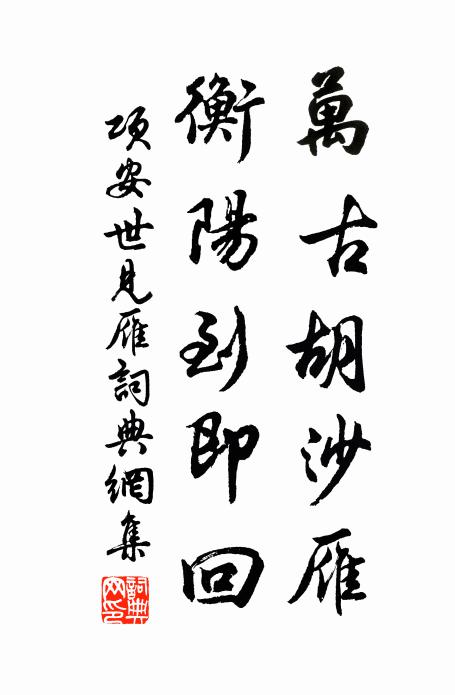 萬古胡沙雁
衡陽到即回
項安世見雁詞典網集
詞典網印